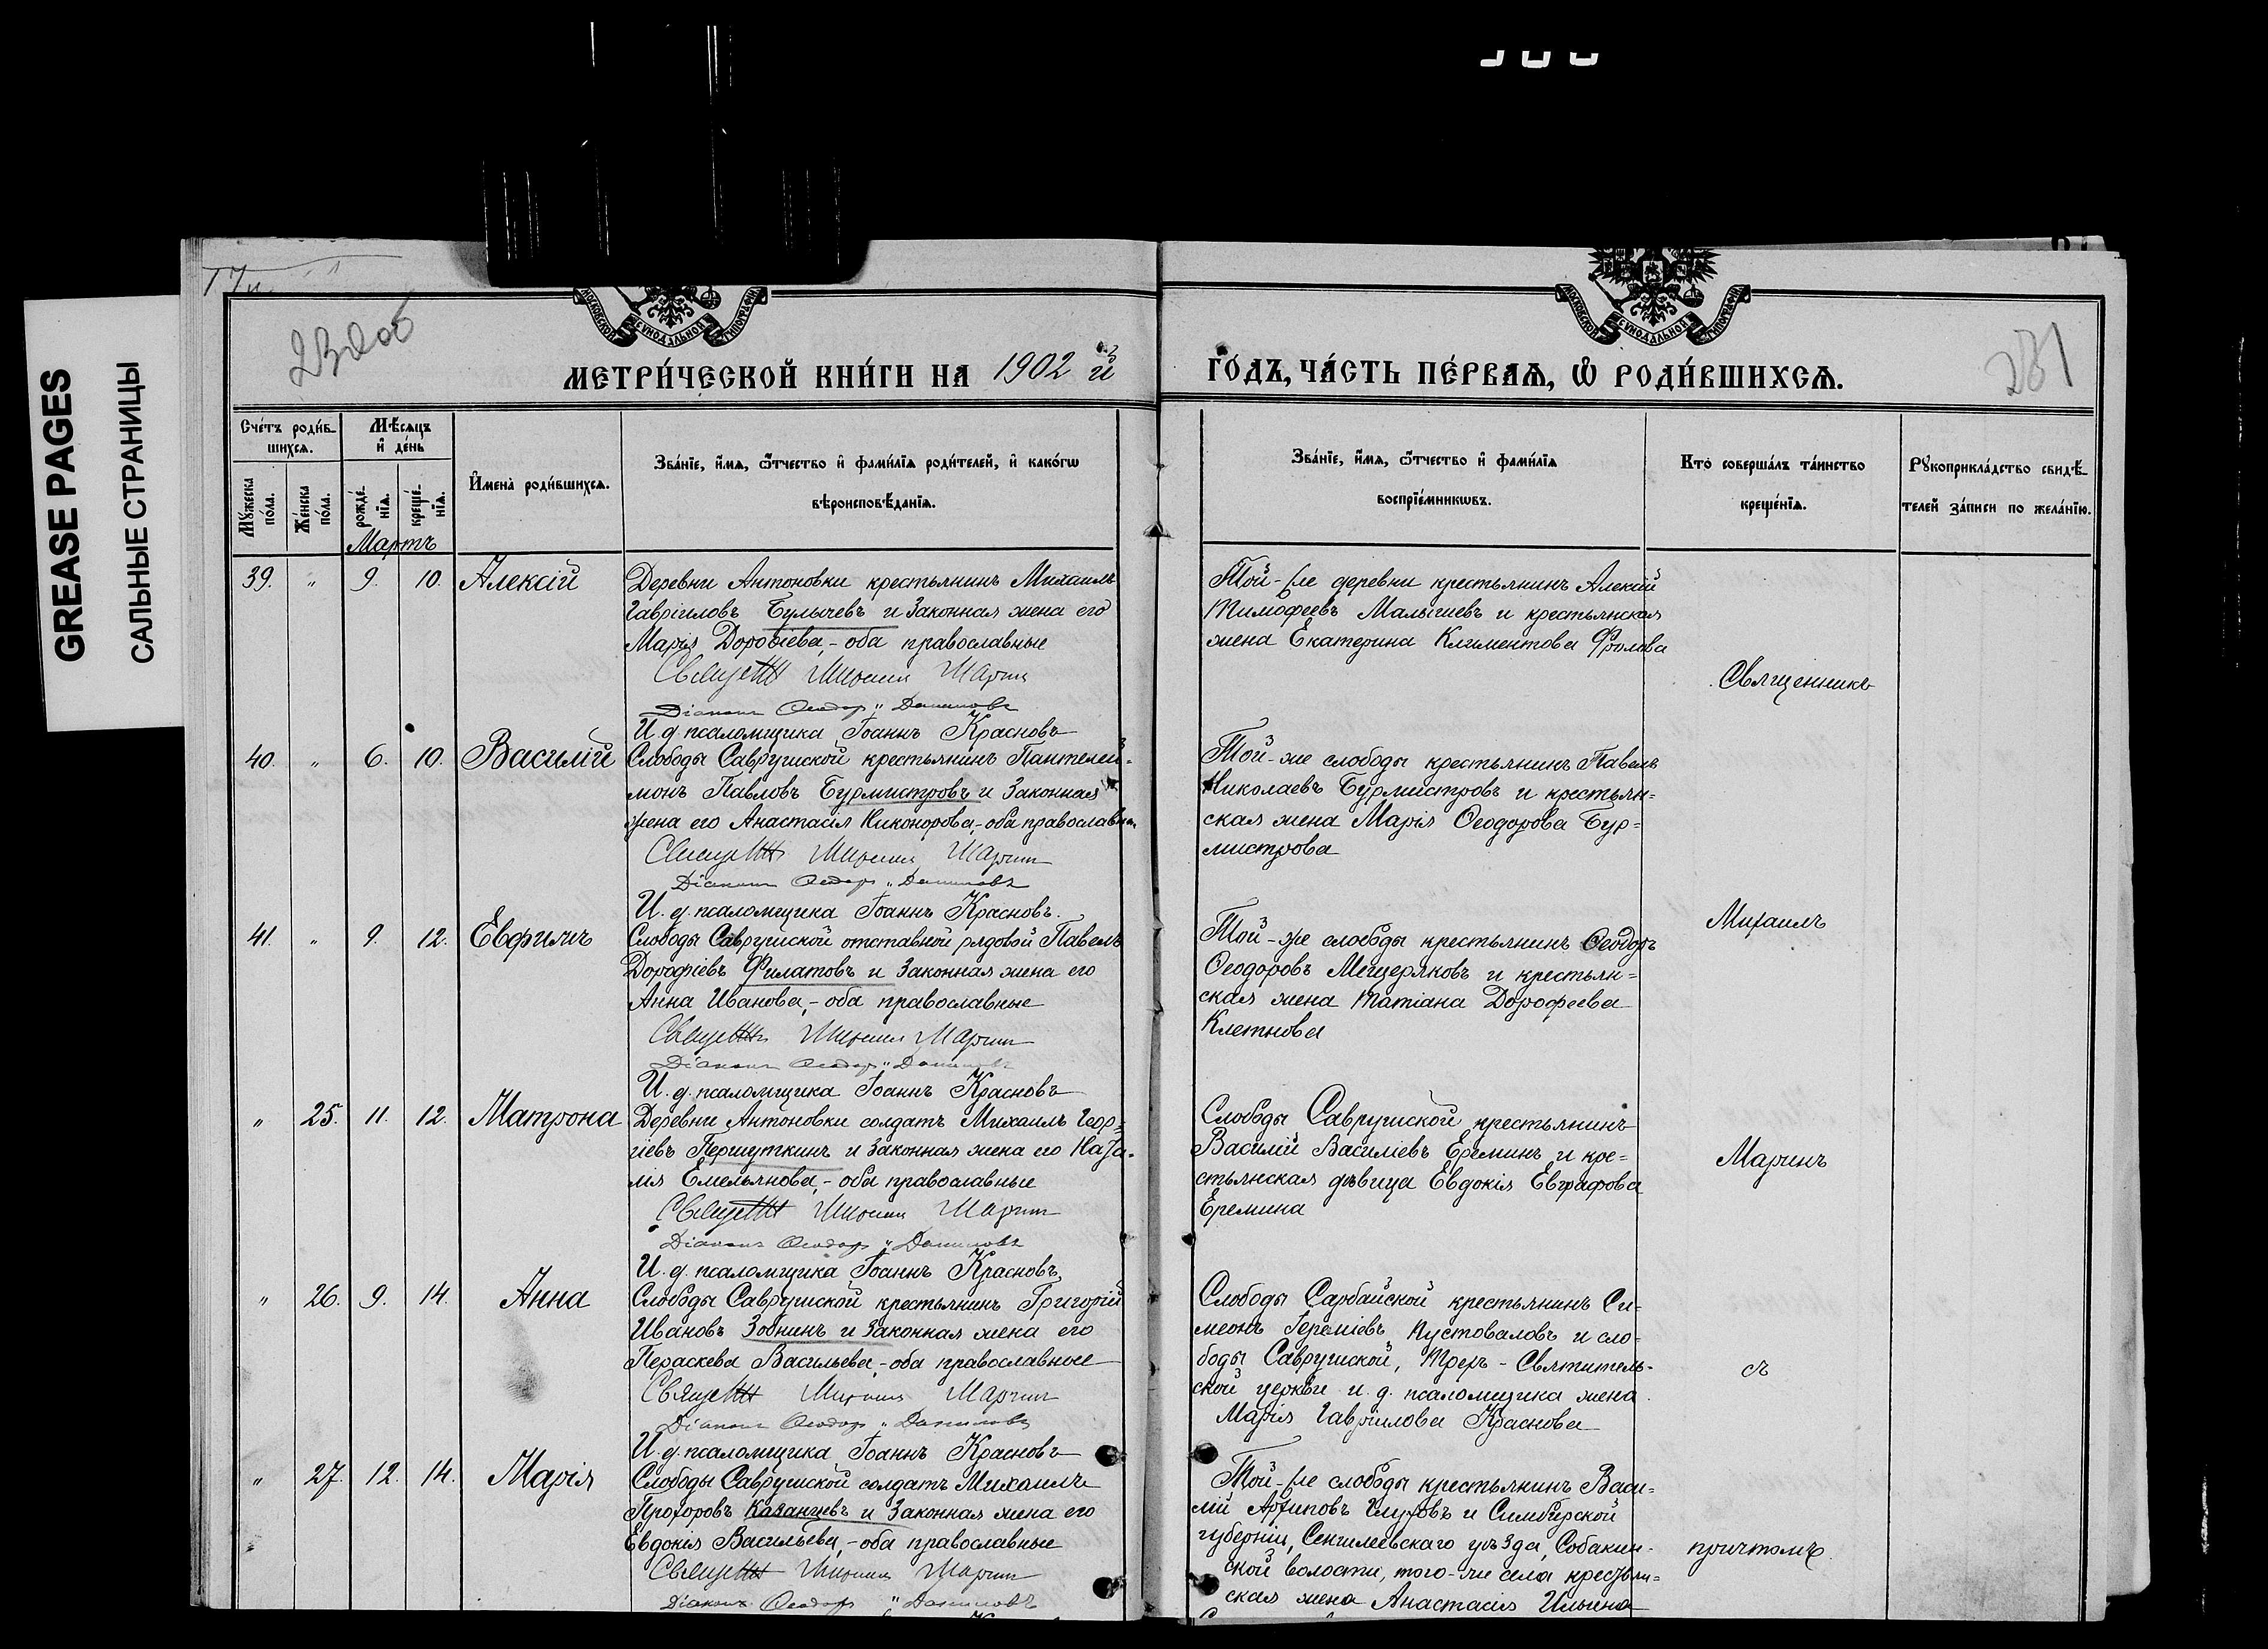 GREASE PAGES
САЛЬНЫЕ СТРАНИЦЫ
МОСКОВСКОЙ СѴНОДАЛЬНОЙ ТИПОГРАФІИ
МОСКОВСКОЙ СѴНОДАЛЬНОЙ ТИПОГРАФІИ
281
МЕТРИ́ЧЕСКОЙ КНИ́ГИ НА 1902 й ГО́ДЪ, ЧА́СТЬ ПЕ́РВАѦ, Ѡ҆ РОДИ́ВШИХСѦ.
Сче́тъ роди́в
шихсѧ.
Мѣ́сѧцъ
и҆ де́нь
Му́жеска по́ла.
Же́нска по́ла.
рожде́-
нїѧ.
креще́-
нїѧ.
И҆мена̀ роди́вшихсѧ.
Зва́нїе, и҆́мѧ, ѻ҆́тчество и҆ фами́лїѧ роди́телей, и҆ како́гѡ
вѣроисповѣ́данїѧ.
Зва́нїе, и҆́мѧ, ѻ҆́тчество и҆ фами́лїѧ
воспрїе́мникѡвъ.
Кто̀ соверша́лъ та́инство
креще́нїѧ.
Рꙋкоприкла́дство свидѣ́-
телей за́писи по жела́нїю.
Мартъ
39. " 9. 10. Алексій
Деревни Антоновки крестьянинъ Михаилъ
Гавріиловъ Булычевъ и законная жена его
Марія Дорофіева, - оба православные
Священ Михаилъ Маринъ
Діаконъ Ѳеодоръ Даниловъ
И. д. псаломщика Іоаннъ Красновъ
Той-же деревни крестьянинъ Алексій
Тимофеевъ Малышевъ и крестьянская
жена Екатерина Климентова Фролова
Священникъ
40. " 6. 10. Василій
Слободы Саврушской крестьянинъ Пантелей-
монъ Павловъ Бурмистровъ и законная
жена его Анастасія Никонорова, - оба православные
Священ Михаилъ Маринъ
Діаконъ Ѳеодоръ Даниловъ
И. д. псаломщика Іоаннъ Красновъ.
Той-же слободы крестьянинъ Павелъ
Николаевъ Бурмистровъ и крестьян=
ская жена Марія Ѳеодорова Бур=
мистрова
Михаилъ
41. " 9. 12. Евфимъ
Слободы Саврушской отставной рядовой Павелъ
Дорофіевъ Филатовъ и законная жена его
Анна Иванова, - оба православные
Священ Михаилъ Маринъ
Діаконъ Ѳеодоръ Даниловъ
И. д. псаломщика Іоаннъ Красновъ
Той-же слободы крестьянинъ Ѳеодоръ
Ѳеодоровъ Мещеряковъ и крестьян=
ская жена Татіана Дорофеева
Клетнова
" 25. 11. 12. Матрона
Деревни Антоновки солдатъ Михаилъ Геор=
гіевъ Першуткинъ и законная жена его Ната-
лія Емельянова, - оба православные
Священ Михаилъ Маринъ
Діаконъ Ѳеодоръ Даниловъ
И. д. псаломщика Іоаннъ Красновъ
Слободы Саврушской крестьянинъ
Василій Василіевъ Ереминъ и кре=
стьянская дѣвица Евдокія Евграфова
Еремина
Маринъ
" 26. 9. 14. Анна
Слободы Саврушской крестьянинъ Григорій
Ивановъ Зобнинъ и законная жена его
Параскева Васильева, - оба православные
Священ Михаилъ Маринъ
Діаконъ Ѳеодоръ Даниловъ
И. д. псаломщика Іоаннъ Красновъ
Слободы Сарбайской крестьянинъ Си-
меонъ Іереміевъ Пустоваловъ и сло-
боды Саврушской, Трех-Святитель-
ской церкви и. д. псаломщика жена
Марія Гавріилова Краснова
съ
" 27. 12. 14. Марія
Слободы Саврушской солдатъ Михаилъ
Прохоровъ Казанцевъ и законная жена его
Евдокія Васильева, - оба православные
Священ Михаилъ Маринъ
Діаконъ Ѳеодоръ Даниловъ
Той-же слободы крестьянинъ Васи-
лій Архиповъ Глуховъ и Симбирской
губерніи, Сенгилеевскаго уѣзда, Собакин-
ской волости, того-же села крестьян=
ская жена Анастасія Ильина
причтомъ.